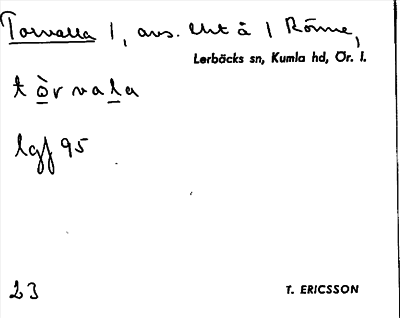 Torvalla 1, avs. lht å 1 Rönne,
Lerbäcks sn, Kumla hd, Ör. l.
t ò r va l a
lgf 95
23
T. ERICSSON